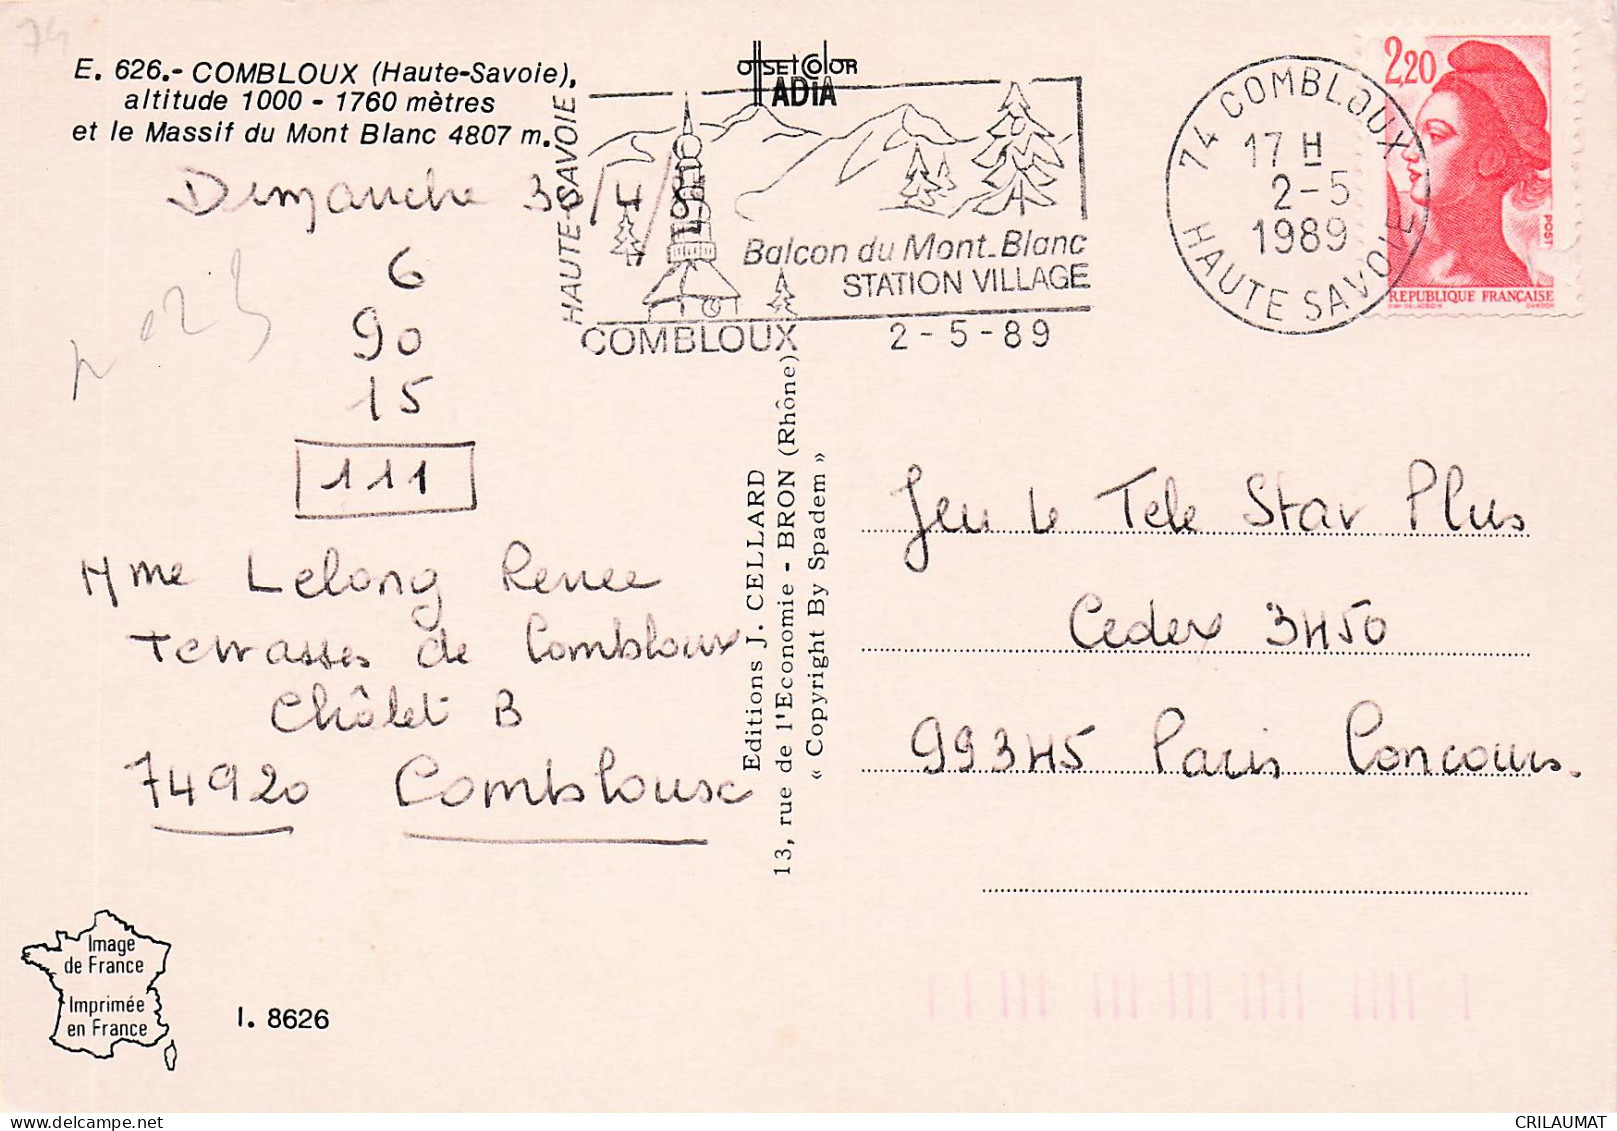 74
E. 626.- COMBLOUX (Haute-Savoie),
altitude 1000 - 1760 mètres
et le Massif du Mont Blanc 4807 m.
offset color
ADIA
HAUTE-SAVOIE
Balcon du Mont-Blanc
STATION VILLAGE
COMBLOUX
2-5-89
74 COMBLOUX
17 H
2-5
1989
HAUTE SAVOIE
2,20
POST
REPUBLIQUE FRANÇAISE
Dimanche 30/4/89
6
90
15
111
Mme Lelong Renee
Terrasses de Combloux
Châlet B
74920 Combloux
Editions J. CELLARD
13, rue de l'Economie - BRON (Rhône)
« Copyright By Spadem »
Jeu le Tele Star Plus
Cedex 3450
99345 Paris Concours.
Image
de France
Imprimée
en France
I. 8626
CRILAUMAT